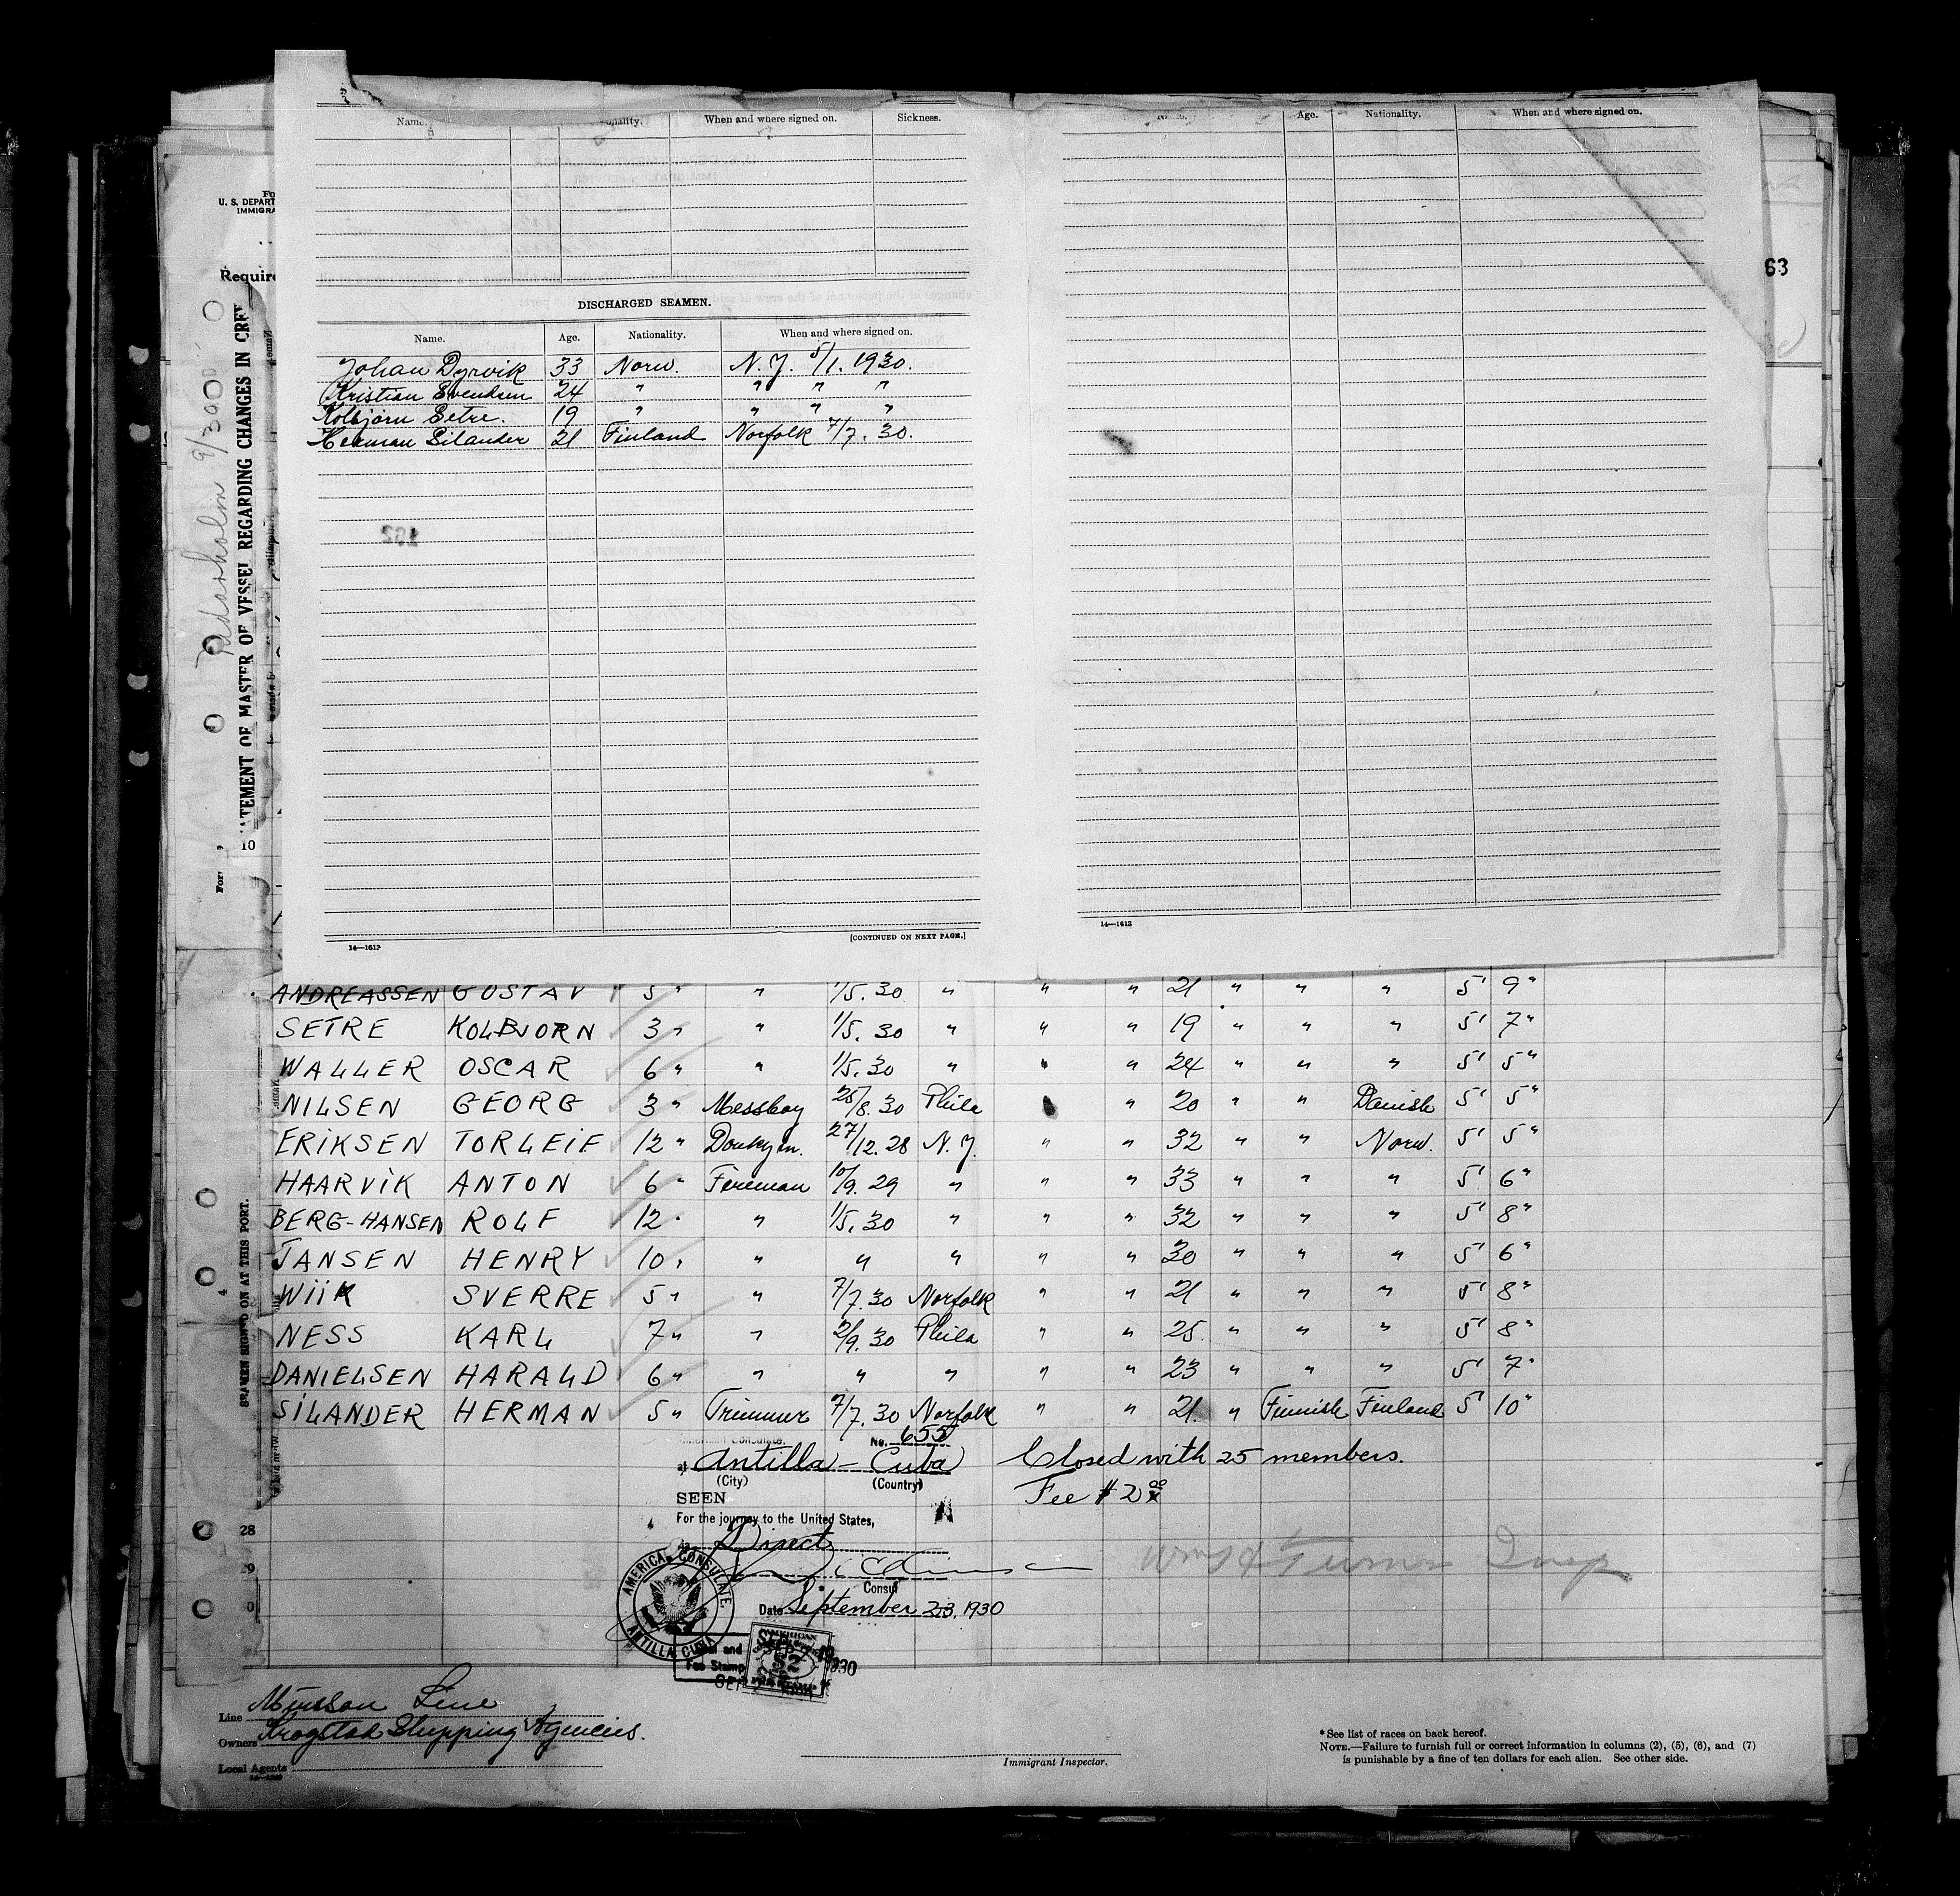 Name. Nationality. When and where signed on. Sickness.
Age. Nationality. When and where signed on.
U. S. DEPART
IMMIGRA
Require
63
STATEMENT OF MASTER OF VESSEL REGARDING CHANGES IN CREW
DISCHARGED SEAMEN.
Name. Age. Nationality. When and where signed on.
Johan Dyrvik 33 Norw. N.Y. 5/1. 1930.
Kristian Svendsen 24 " " " "
Kolbjørn Setre. 19 " " " "
Herman Silander 21 Finland Norfolk 7/7. 30.
162
10
14—1613 [CONTINUED ON NEXT PAGE.]
14—1613
ANDREASSEN GUSTAV 5 " " 1/5. 30 " " " 21 " " " 5' 9"
SETRE KOLBJORN 3 " " 1/5. 30 " " " 19 " " " 5' 7"
WALLER OSCAR 6 " " 1/5. 30 " " " 24 " " " 5' 5"
NILSEN GEORG 3 " Messboy 28/8. 30 Phila " " 20 " " Danish 5' 5"
ERIKSEN TORLEIF 12 " Donkym. 27/12. 28 N.Y. " " 32 " " Norw. 5' 5"
HAARVIK ANTON 6 " Fireman 10/9. 29 " " " 33 " " " 5' 6"
BERG-HANSEN ROLF 12 " " 1/5. 30 " " " 32 " " " 5' 8"
JANSEN HENRY 10 " " " " " " 30 " " " 5' 6"
WIIK SVERRE 5 " " 7/7. 30 Norfolk " " 21 " " " 5' 8"
NESS KARL 7 " " 2/9. 30 Phila " " 25 " " " 5' 8"
DANIELSEN HARALD 6 " " " " " " 23 " " " 5' 7"
SILANDER HERMAN 5 " Trimmer 7/7. 30 Norfolk " " 21 " Finnish Finland 5' 10"
SEAMEN SIGNED ON AT THIS PORT.
American Consulate. No. 655
at Antilla - Cuba Closed with 25 members.
(City) (Country)
Fee $ 2.00
SEEN
For the journey to the United States,
28
Direct
29
Consul
Date September 23, 1930
AMERICAN CONSULATE. ANTILLA CUBA
Fee Stamp
Line Munson Line
Owners Krogstad Shipping Agencies.
Local Agents
Immigrant Inspector.
* See list of races on back hereof.
NOTE.—Failure to furnish full or correct information in columns (2), (5), (6), and (7)
is punishable by a fine of ten dollars for each alien. See other side.